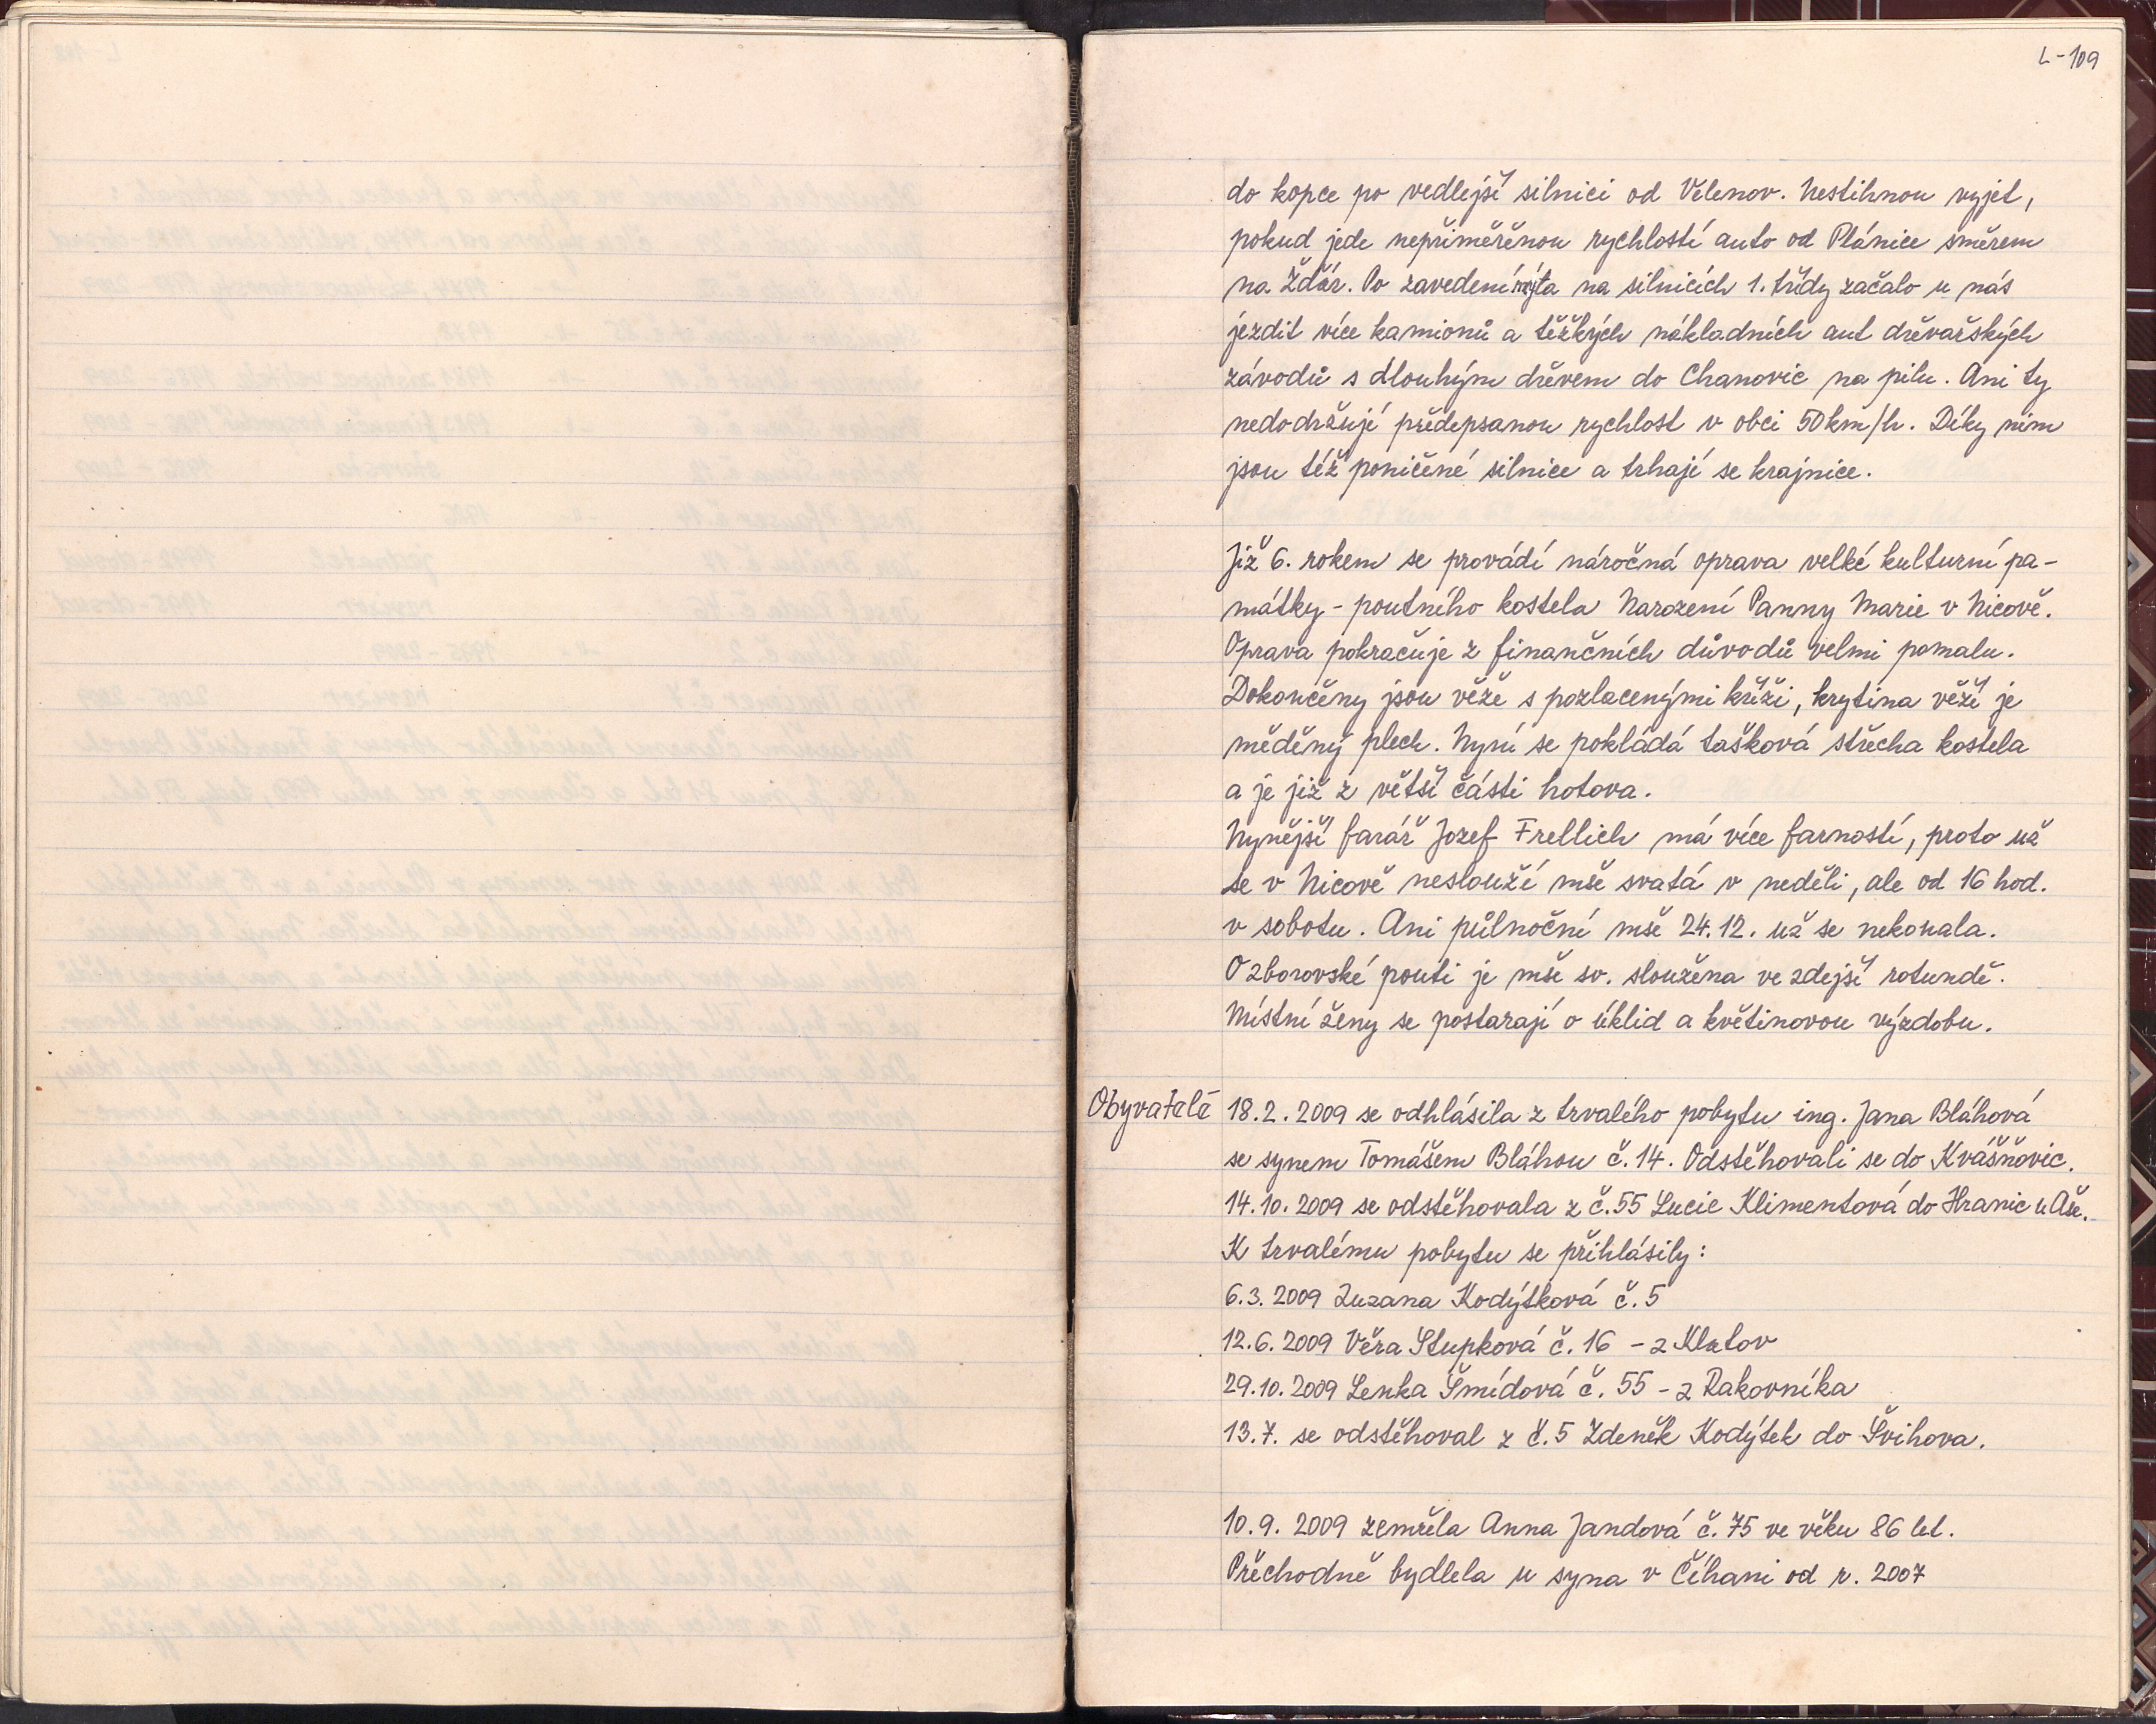 L-109
do kopce po vedlejší silnici od Velenov. Nestihnou vyjet,
pokud jede nepřiměřěnou rychlostí auto od Plánice směrem
na Žďár. Po zavedení mýta na silnicích 1. třídy začalo u nás
jezdit více kamionů a těžkých nákladních aut dřevařských
závodů s dlouhým dřevem do Chanovic na pilu. Ani ty
nedodržují předepsanou rychlost v obci 50 km/h. Díky nim
jsou též poničené silnice a trhají se krajnice.
Již 6. rokem se provádí náročná oprava velké kulturní pa-
mátky - poutního kostela Narození Panny Marie v Nicově.
Oprava pokračuje z finančních důvodů velmi pomalu.
Dokončeny jsou věže s pozlacenými kříži, krytina věží je
měděný plech. Nyní se pokládá tašková střecha kostela
a je již z větší části hotova.
Nynější farář Jozef Frellich má více farností, proto už
se v Nicově neslouží mše svatá v neděli, ale od 16 hod.
v sobotu. Ani půlnoční mše 24.12. už se nekonala.
O zborovské pouti je mše sv. sloužena ve zdejší rotundě.
Místní ženy se postarají o úklid a květinovou výzdobu.
Obyvatelé 18.2.2009 se odhlásila z trvalého pobytu ing. Jana Bláhová
se synem Tomášem Bláhou č.14. Odstěhovali se do Kvášňovic.
14.10.2009 se odstěhovala z č.55 Lucie Klimentová do Hranic u Aše.
K trvalému pobytu se přihlásily:
6.3.2009 Zuzana Kodýtková č.5
12.6.2009 Věra Stupková č.16 - z Klatov
29.10.2009 Lenka Šmídová č.55 - z Rakovníka
13.7. se odstěhoval z č.5 Zdeněk Kodýtek do Švihova.
10.9.2009 zemřela Anna Jandová č.75 ve věku 86 let.
Přechodně bydlela u syna v Číhani od r. 2007